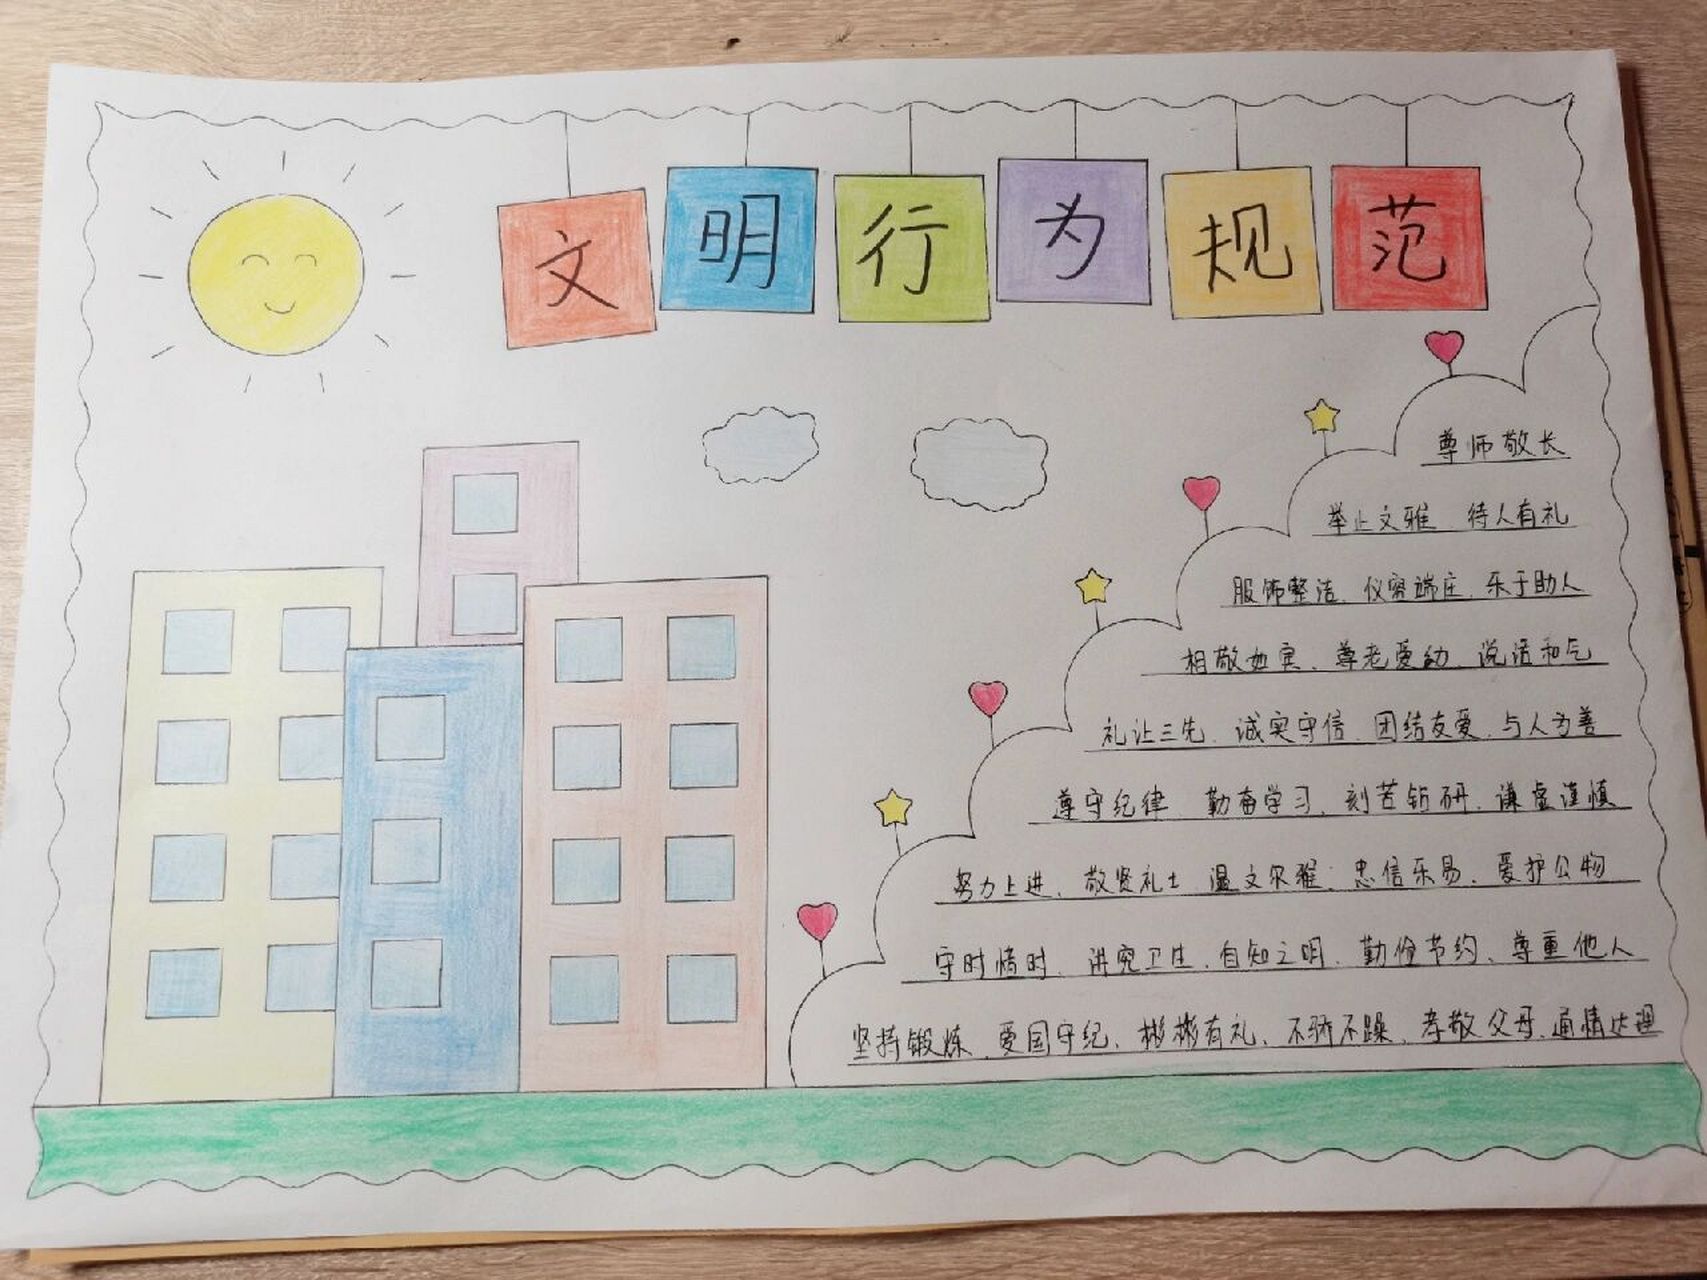 文明行为规范
尊师敬长
举止文雅 待人有礼
服饰整洁、仪容端庄、乐于助人
相敬如宾、尊老爱幼、说话和气
礼让三先、诚实守信、团结友爱、与人为善
遵守纪律、勤奋学习、刻苦钻研、谦虚谨慎
努力上进、敬贤礼士 温文尔雅、忠信乐易、爱护公物
守时惜时、讲究卫生、自知之明、勤俭节约、尊重他人
坚持锻炼、爱国守纪、彬彬有礼、不骄不躁、孝敬父母、通情达理